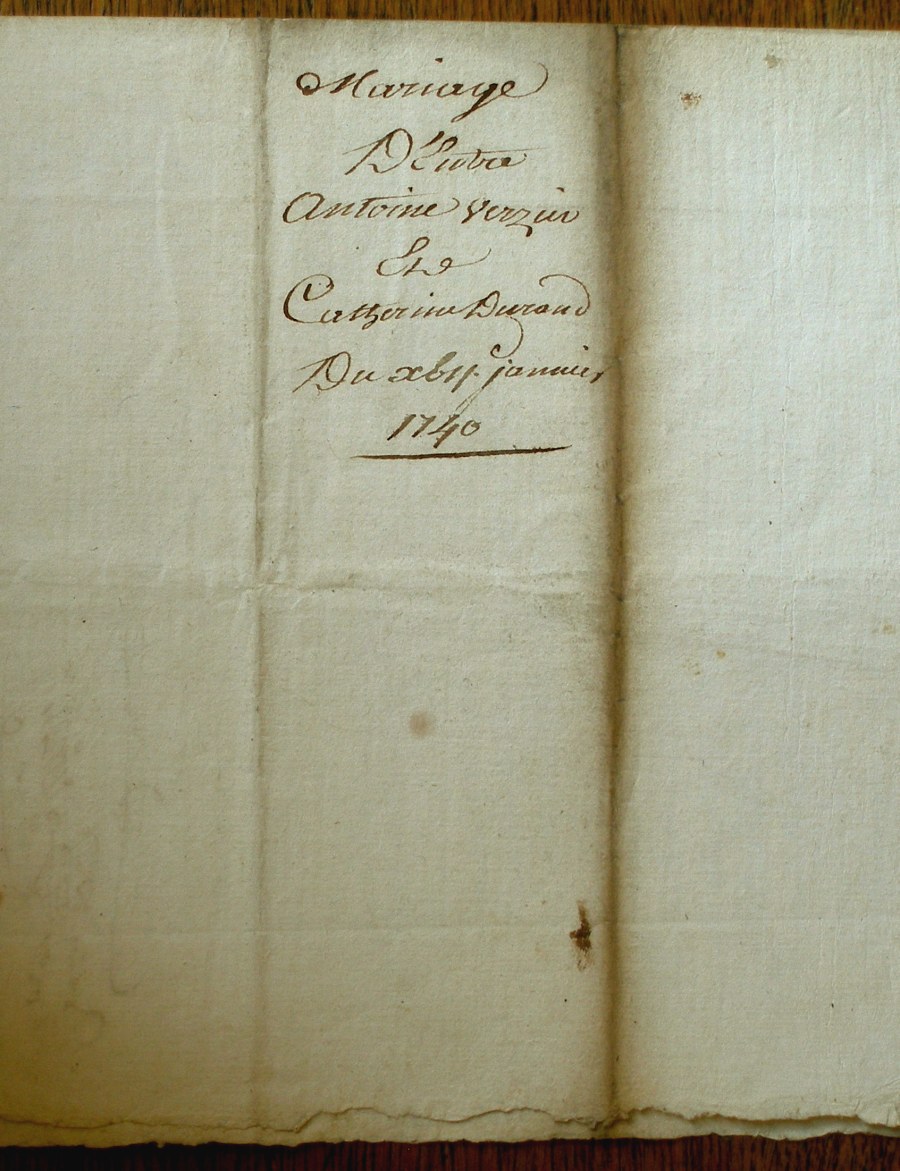 Mariage
D'Entre
Antoine Verzier
Et
Catherine Durand
Du xbij janvier
1740